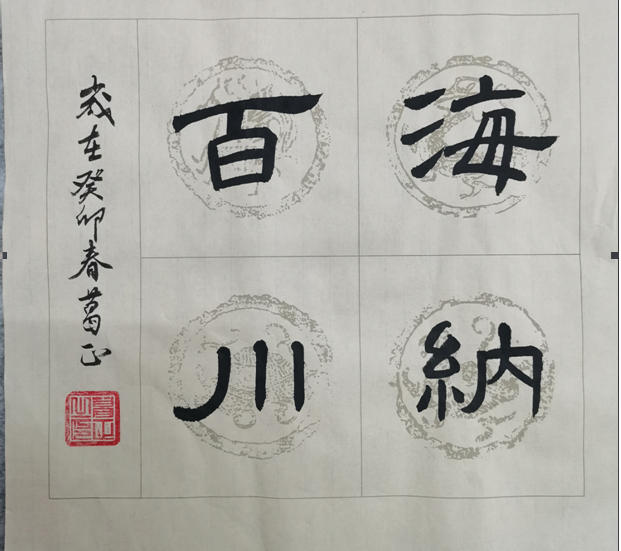 海納
百川
歲在癸卯春葛正